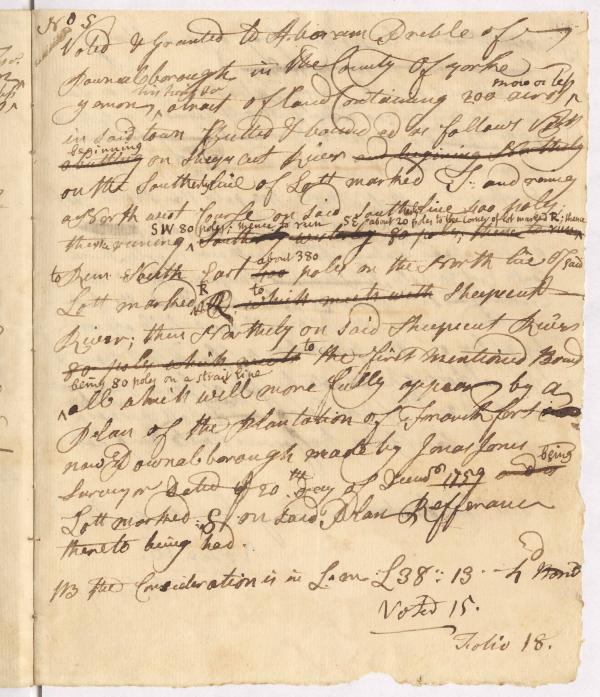 No S
Voted & Granted to Abiram Preble of
Pownalborough in the County of yorke
more or less
yeman, his hons &c a tract of land Containing 200 acres
in said town Butted & bounded as follows Viz
beginning
abutting on Sheepscut River and begining Northerly
on the Southerly line of Lott marked T: and runing
a North west Course on said Southerly line 400 poles;
SW 80 poles; thence to run SE about 20 poles to the Corner of Lot marked R; thence
thence running Southerly westerly 80 poles; thence to run
about 380
to Run South East 400 poles on the North line of said
R to
Lott marked R which meets with Sheepscut
River; then Northerly on said Sheepscut River
80 poles which meets to the first mentioned Bound
being 80 poles on a strait line
all which will more fully appear by a
Plan of the plantation of Franckfort
now Pownalborough made by Jonas Jones
being
Surveyor Dated ye 20th day of Decembr 1759 and is
Lott marked :S: on said Plan Refferance
thereto being had.
NB the Consideration is in L.m: £38:: 13 - 4d
Voted 15.
Folio 18.